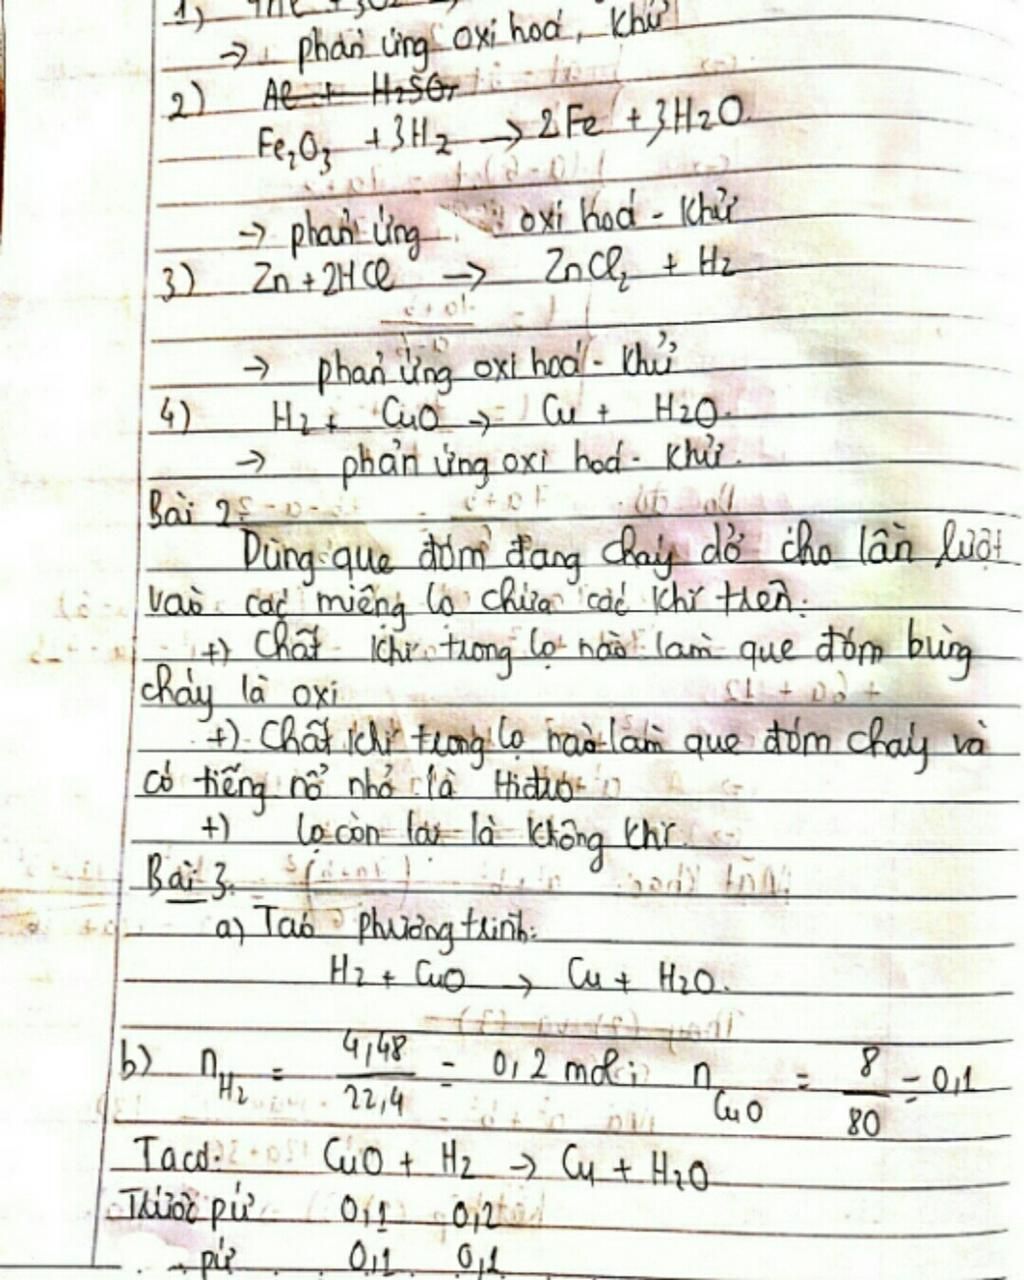 1)
→ phản ứng oxi hoá, khử
2) Al + H2SO4
Fe2O3 + 3H2 → 2Fe + 3H2O
→ phản ứng oxi hoá - khử
3) Zn + 2HCl → ZnCl2 + H2
→ phản ứng oxi hoá - khử
4) H2 + CuO → Cu + H2O.
→ phản ứng oxi hoá - khử.
Bài 2:
Dùng que đóm đang cháy dở cho lần lượt
vào các miệng lọ chứa các khí trên.
+) Chất khí trong lọ nào làm que đóm bùng
cháy là oxi
+) Chất khí trong lọ nào làm que đóm cháy và
có tiếng nổ nhỏ là Hiđro
+) lọ còn lại là không khí.
Bài 3.
a) Ta có phương trình:
H2 + CuO → Cu + H2O.
b) nH2 = 4,48/22,4 = 0,2 mol; nCuO = 8/80 = 0,1
Ta có: CuO + H2 → Cu + H2O
Trước pứ 0,1 0,2
pứ 0,1 0,1